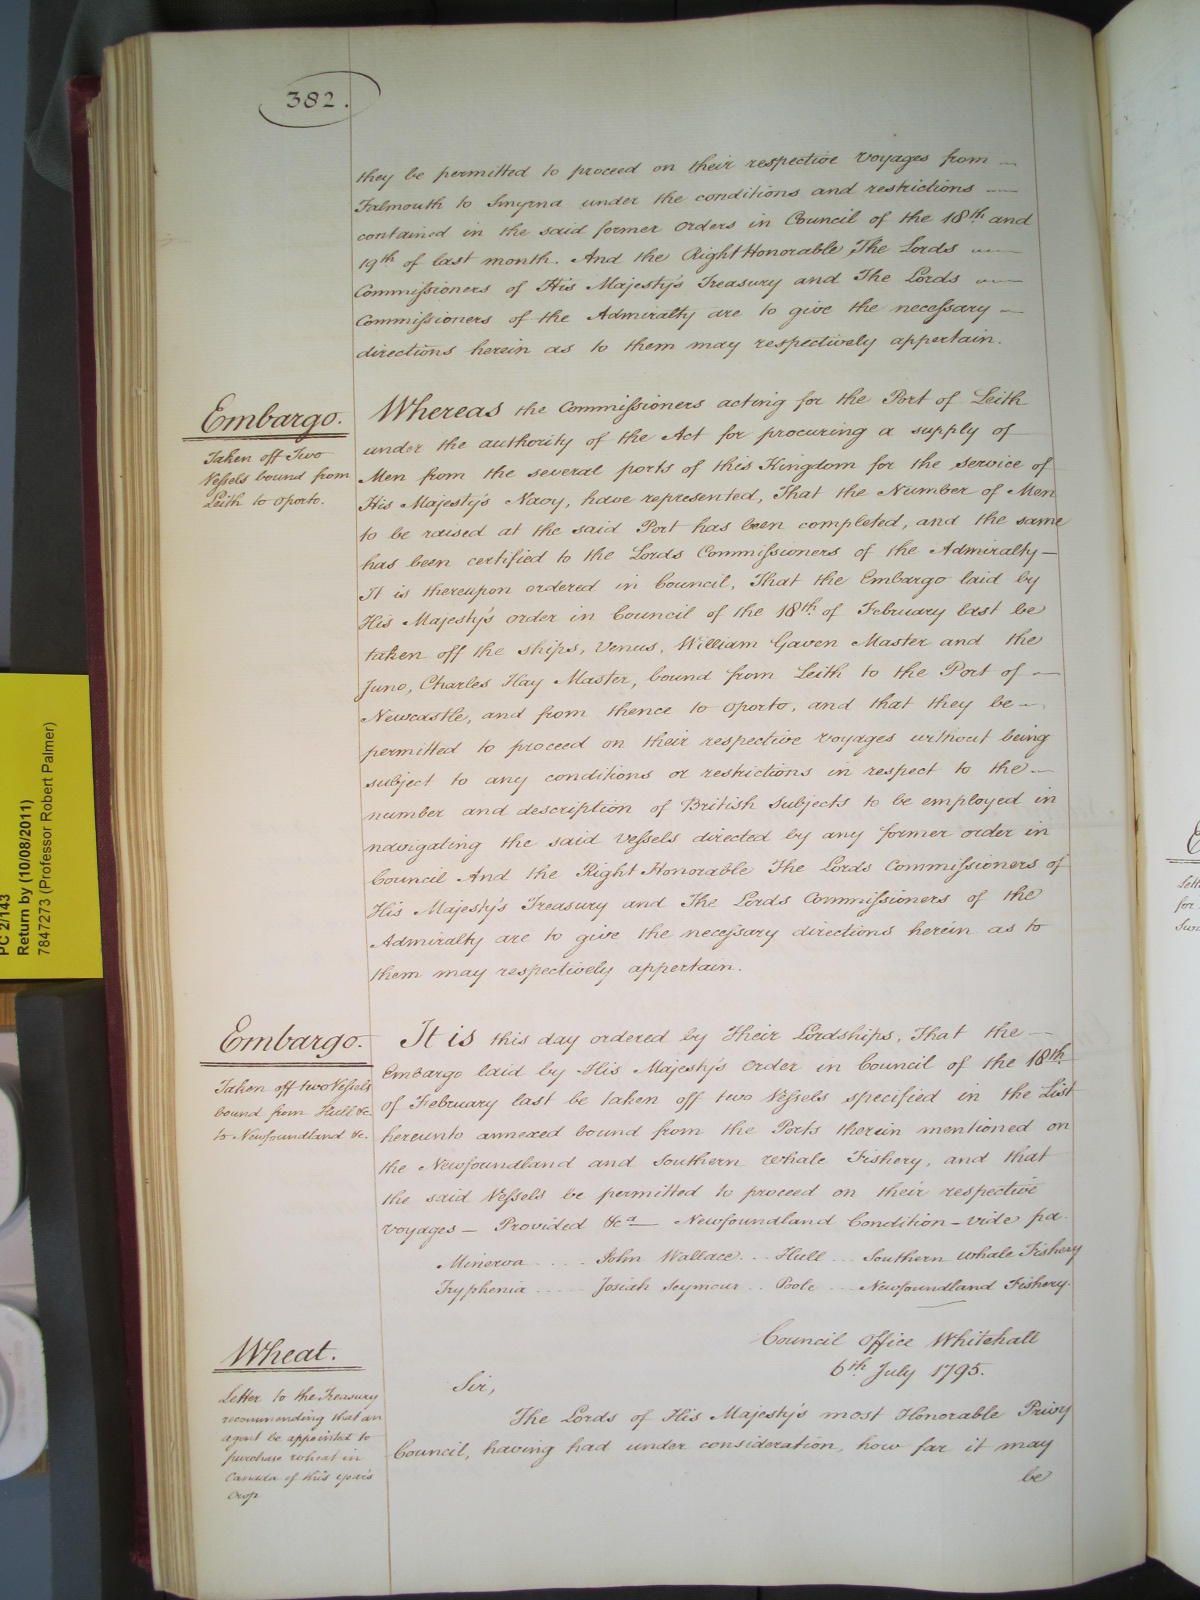 382.
they be permitted to proceed on their respective voyages from
Falmouth to Smyrna under the conditions and restrictions
contained in the said former Orders in Council of the 18th and
19th of last month. And the Right Honorable The Lords
Commissioners of His Majesty's Treasury and The Lords
Commissioners of the Admiralty are to give the necessary
directions herein as to them may respectively appertain.
Embargo.
Taken off Two
Vessels bound from
Leith to Oporto.
Whereas the Commissioners acting for the Port of Leith
under the authority of the Act for procuring a supply of
Men from the several ports of this Kingdom for the service of
His Majesty's Navy, have represented, That the Number of Men
to be raised at the said Port has been completed, and the same
has been certified to the Lords Commissioners of the Admiralty —
It is thereupon ordered in Council, That the Embargo laid by
His Majesty's order in Council of the 18th of February last be
taken off the ships, Venus, William Gaven Master and the
Juno, Charles Hay Master, bound from Leith to the Port of —
Newcastle, and from thence to Oporto, and that they be —
permitted to proceed on their respective voyages without being
subject to any conditions or restrictions in respect to the —
number and description of British Subjects to be employed in
navigating the said Vessels directed by any former order in
Council And the Right Honorable The Lords Commissioners of
His Majesty's Treasury and The Lords Commissioners of the
Admiralty are to give the necessary directions herein as to
them may respectively appertain.
Embargo.
Taken off two Vessels
bound from Hull &c
to Newfoundland &c.
It is this day ordered by Their Lordships, That the —
Embargo laid by His Majesty's Order in Council of the 18th
of February last be taken off two Vessels specified in the List
hereunto annexed bound from the Ports therein mentioned on
the Newfoundland and Southern Whale Fishery, and that
the said Vessels be permitted to proceed on their respective
voyages — Provided &ca — Newfoundland Condition – vide pa.
Minerva .... John Wallace ... Hull ... Southern Whale Fishery
Tryphenia ..... Josiah Seymour .. Poole ... Newfoundland Fishery.
Council Office Whitehall
6th July 1795.
Wheat.
Letter to the Treasury
recommending that an
agent be appointed to
purchase wheat in
Canada of this year's
Crop
Sir,
The Lords of His Majesty's most Honorable Privy
Council, having had under consideration, how far it may
be
PC 2/143
Return by (10/08/2011)
7847273 (Professor Robert Palmer)